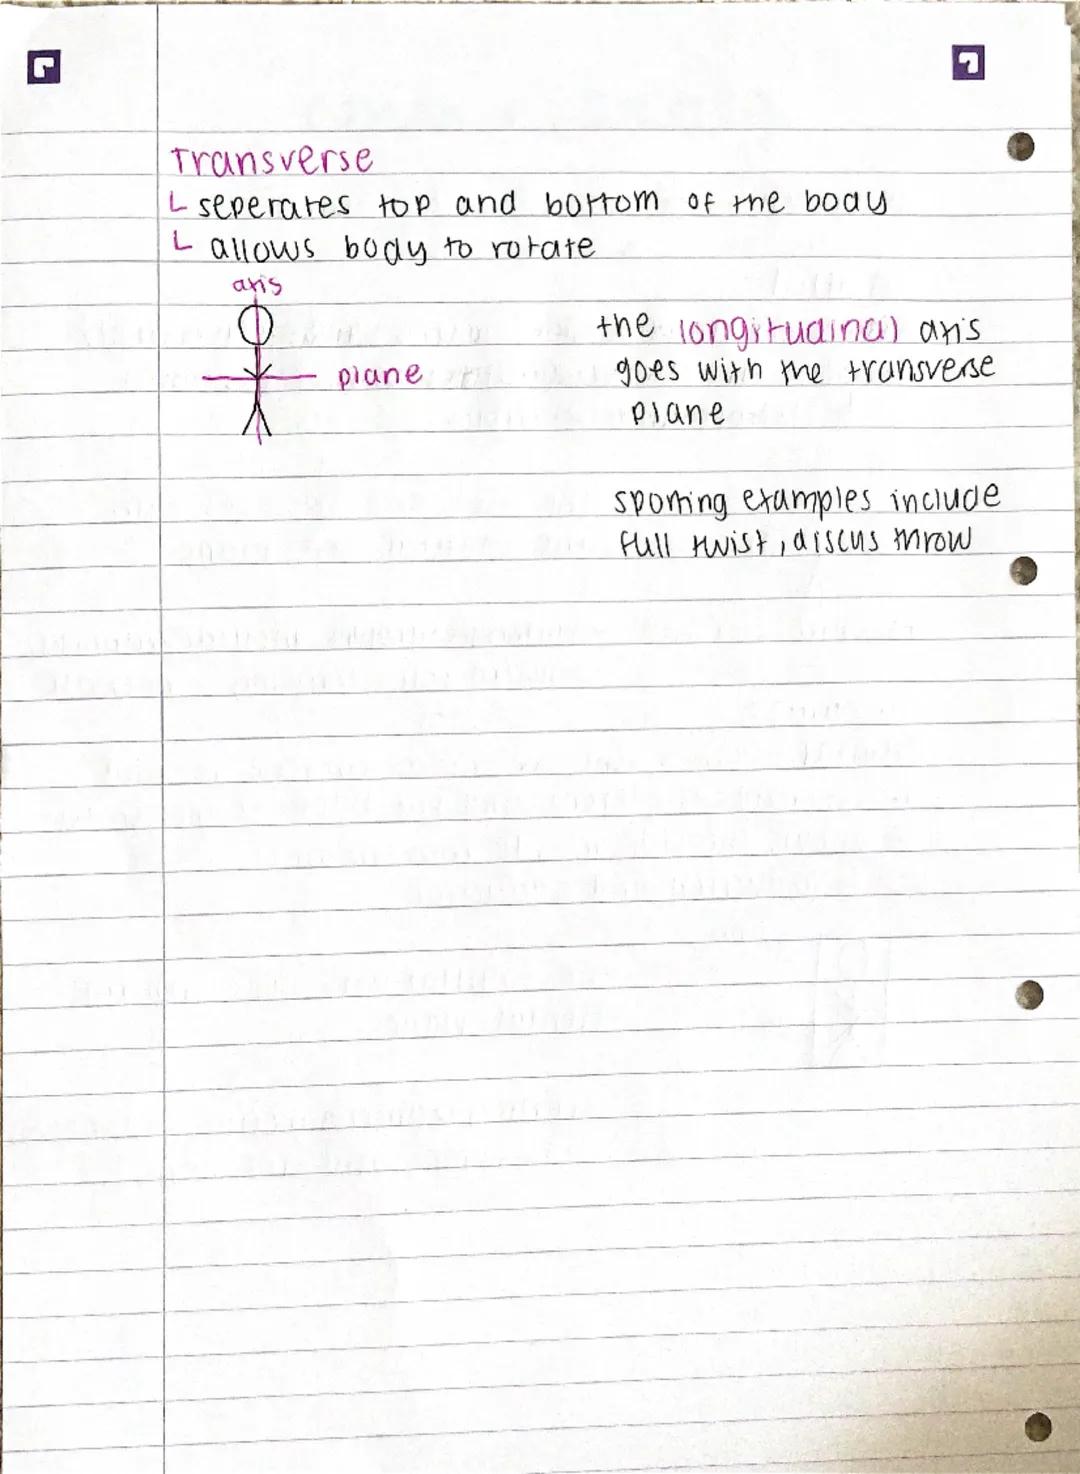 Transverse
L seperates top and bottom of the body
L allows body to rotate
axis
the longitudinal axis
plane
goes with the transverse
plane
sporting examples include
full twist, discus throw